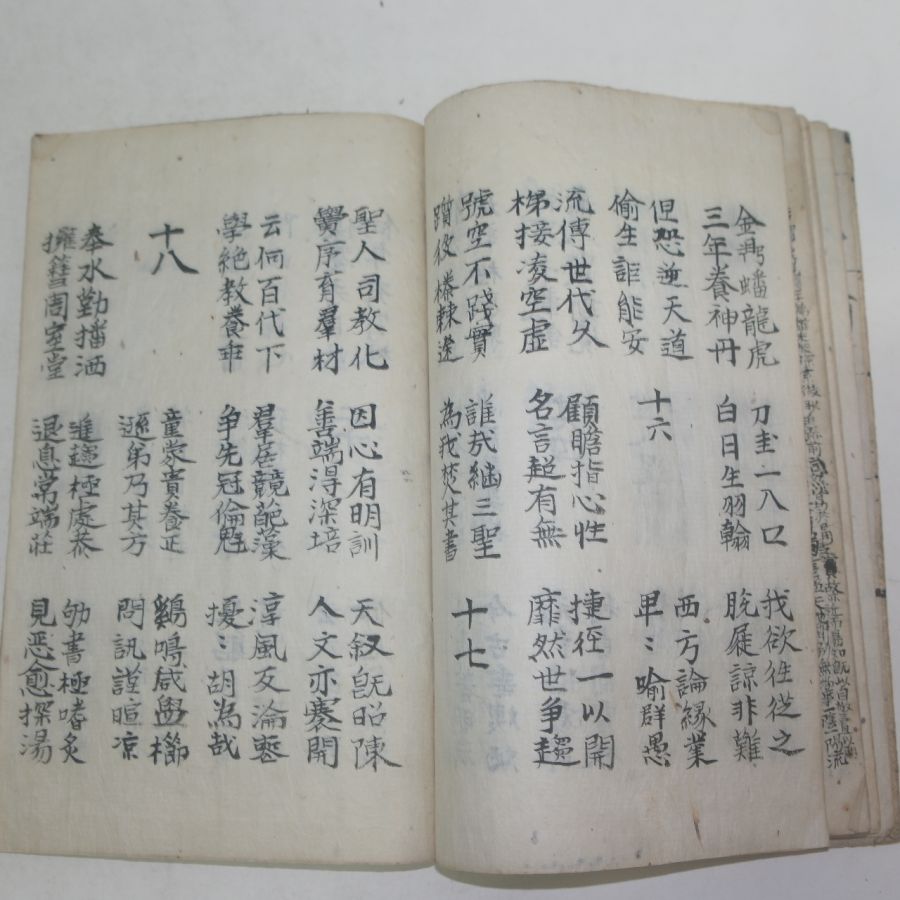 金鼎蟠龍虎
三年養神丹
刀圭一入口
白日生羽翰
我欲往從之
脫屣諒非難
但恐逆天道
偷生詎能安
十六
西方論緣業
卑〻喻群愚
流傳世代久
梯接凌空虛
顧瞻指心性
名言超有無
捷徑一以開
靡然世爭趨
號空不踐實
躓彼榛棘途
誰哉継三聖
為我焚其書
十七
聖人司教化
黌序育羣材
因心有明訓
善端得深培
天叙旣昭陳
人文亦褰開
云何百代下
學絶教養乖
羣居競葩藻
爭先冠倫魁
淳風反淪喪
擾〻胡為哉
十八
童蒙貴養正
遜弟乃其方
鷄鳴咸盥櫛
問訊謹暄凉
奉水勤播洒
擁篲周室堂
進趨極處恭
退息常端莊
劬書極嗜炙
見惡愈探湯